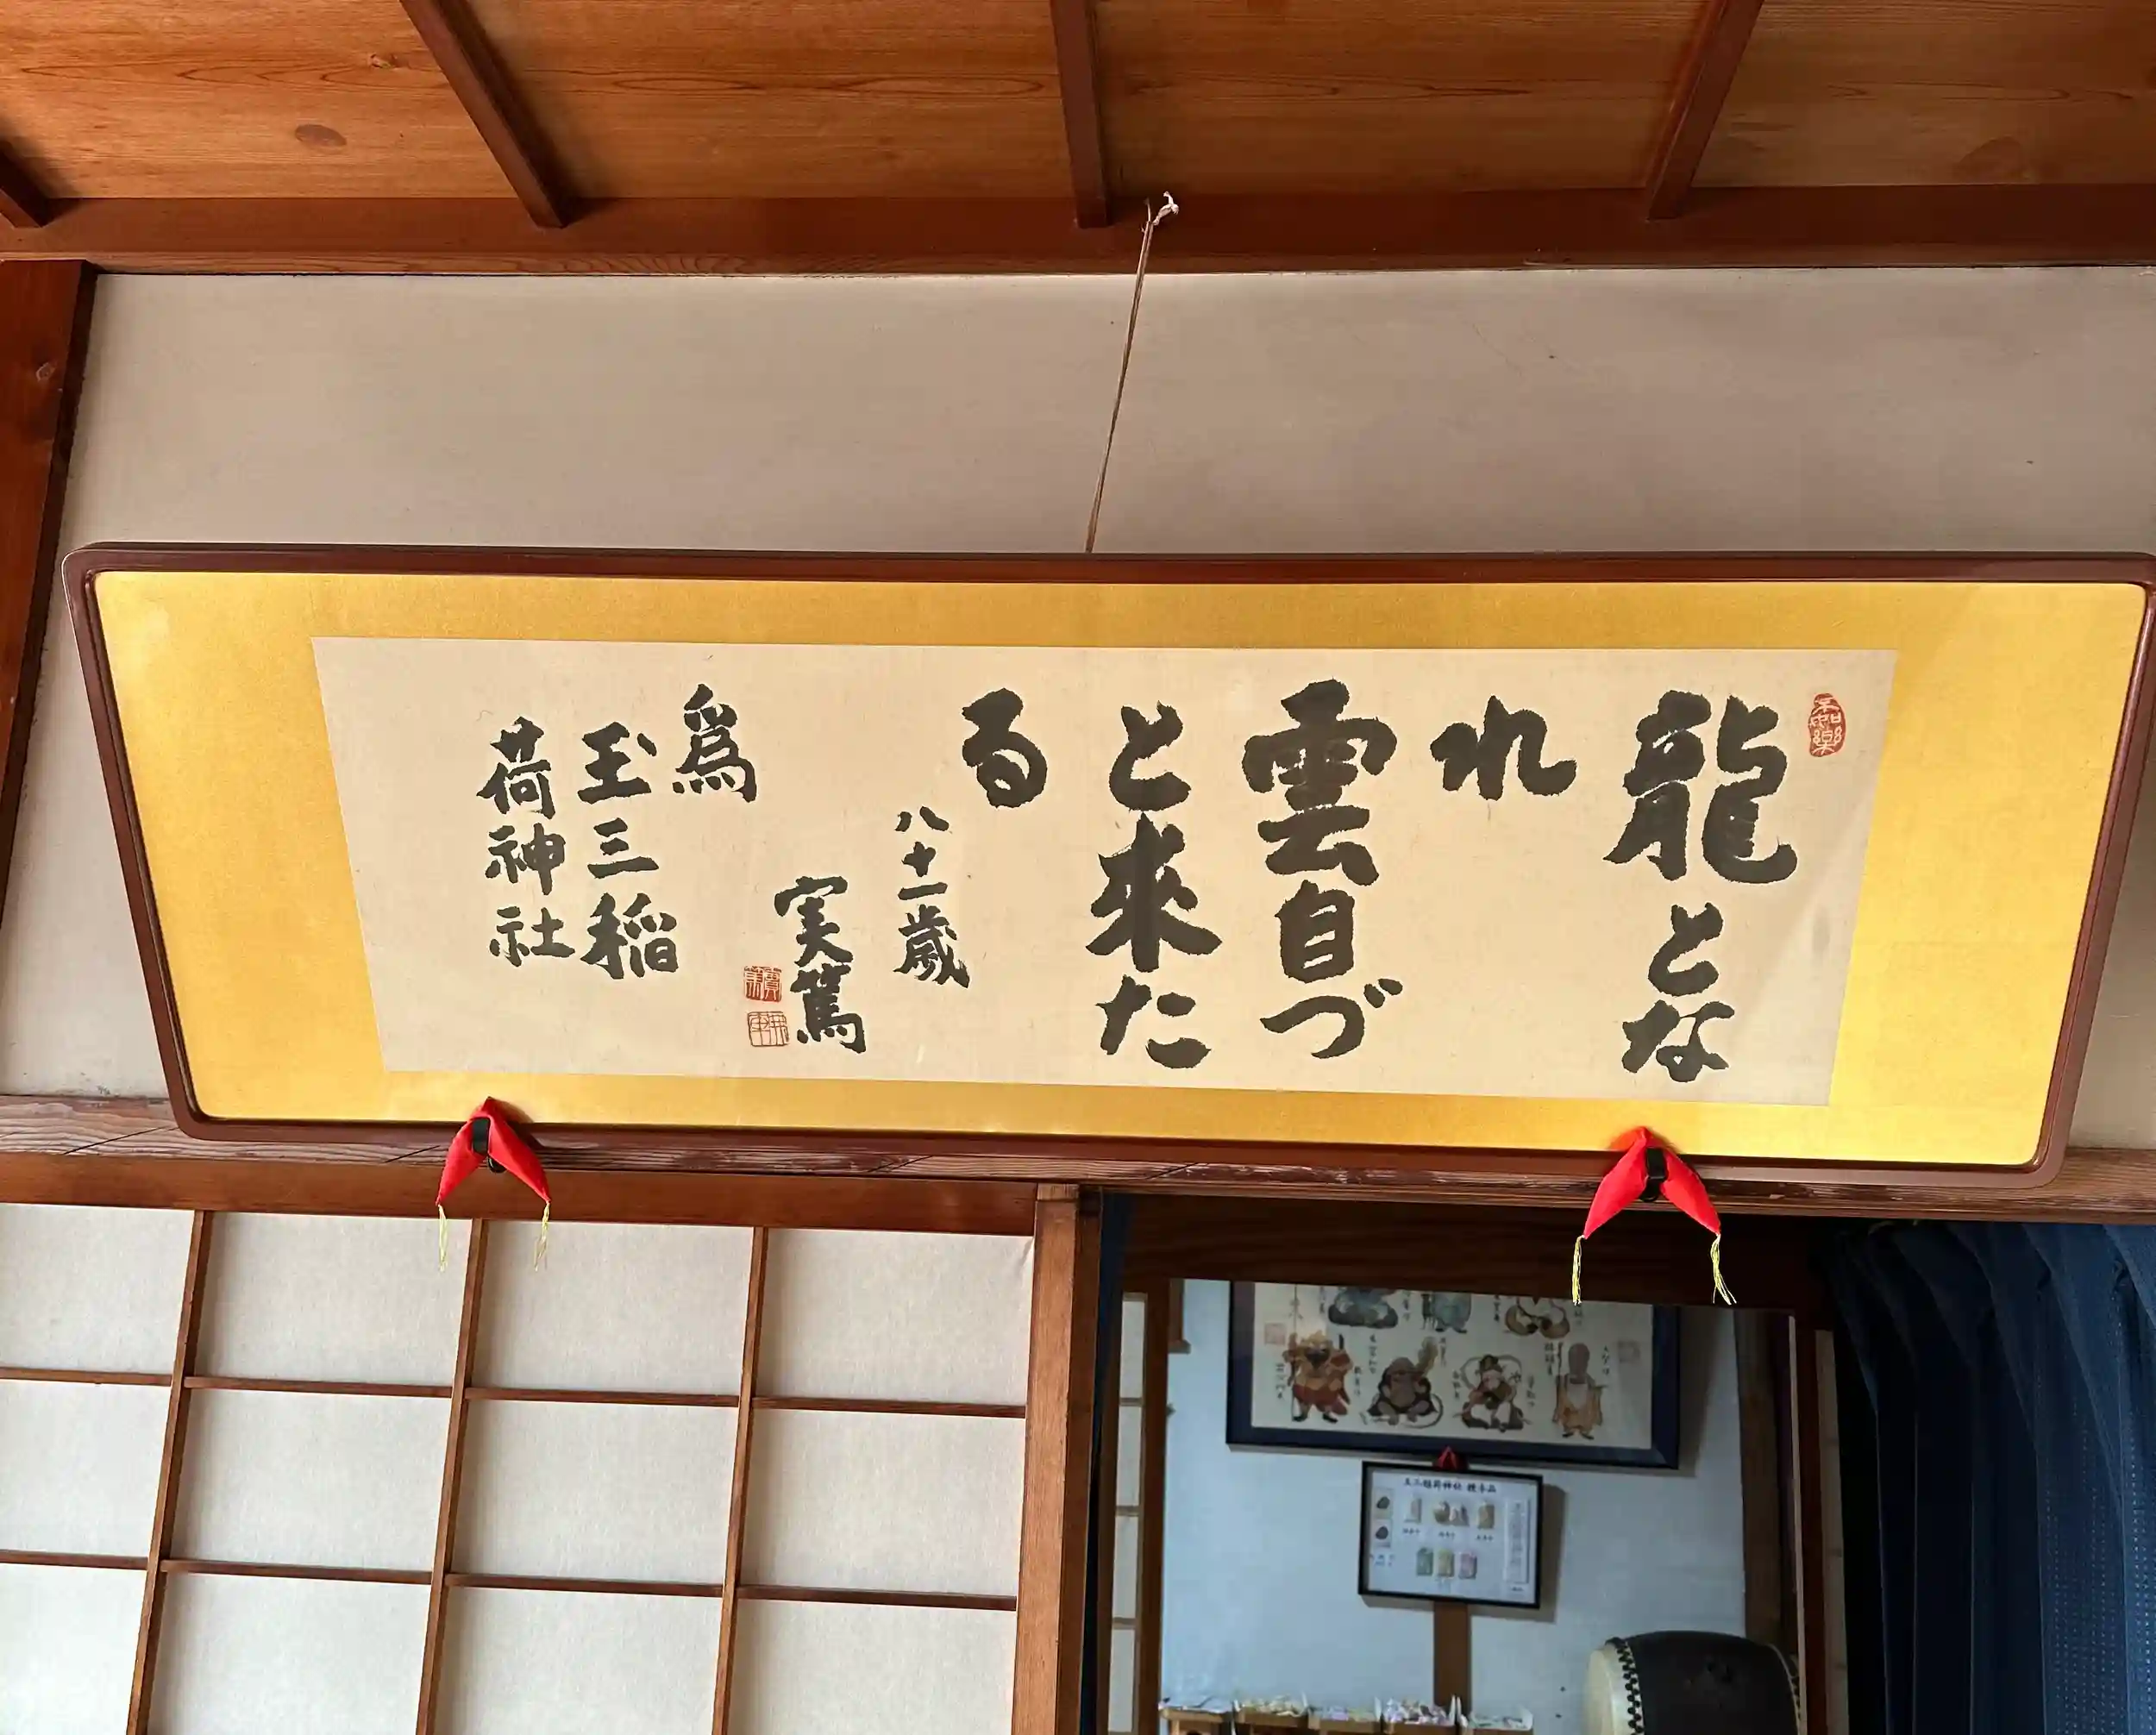 龍とな
れ
雲自づ
と来た
る
八十一歳
実篤
爲
玉三稲
荷神社
玉三稲荷神社 授与品